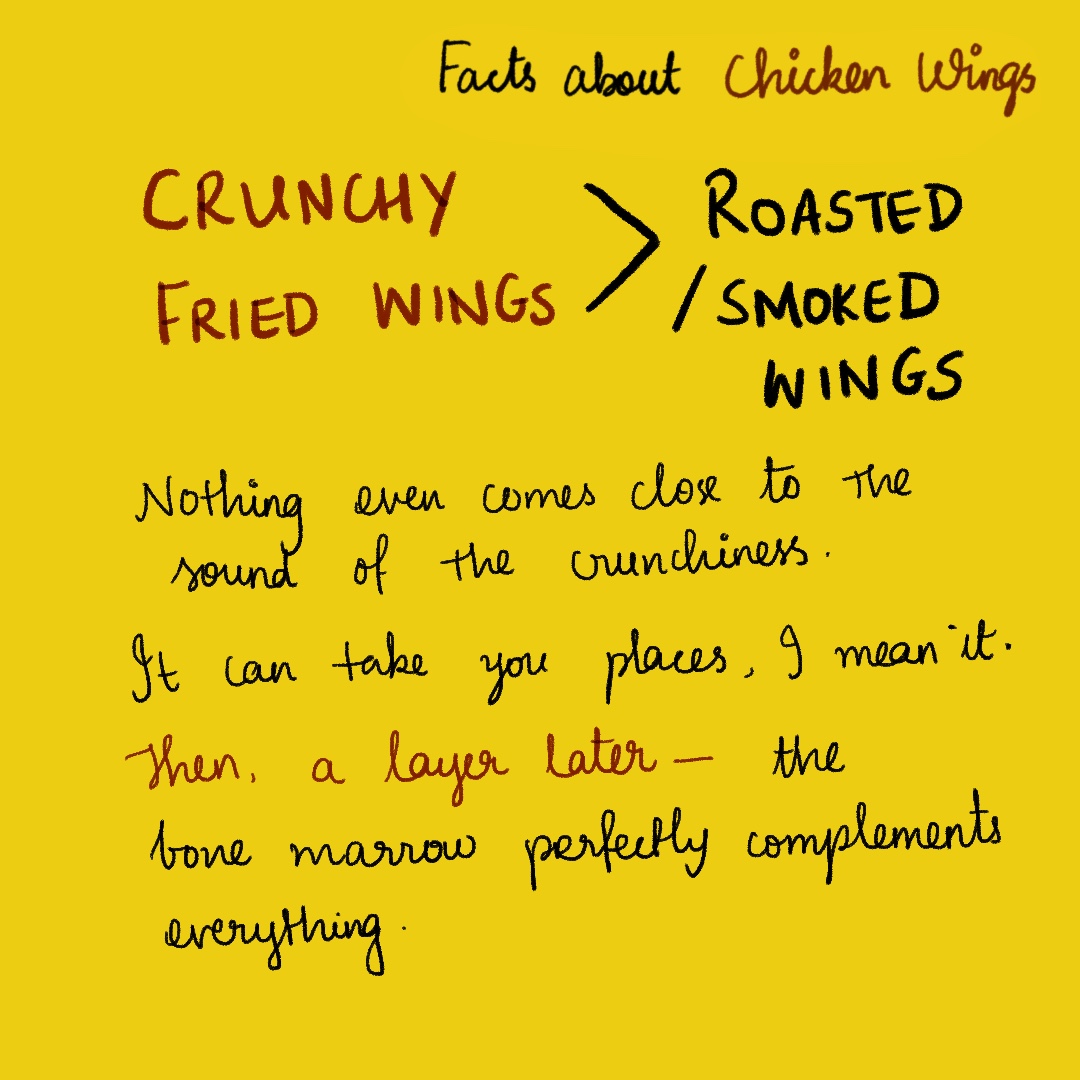 Facts about Chicken Wings
CRUNCHY > ROASTED
FRIED WINGS /SMOKED
WINGS
Nothing even comes close to the
sound of the crunchiness.
It can take you places, I mean it.
Then, a layer later — the
bone marrow perfectly complements
everything.